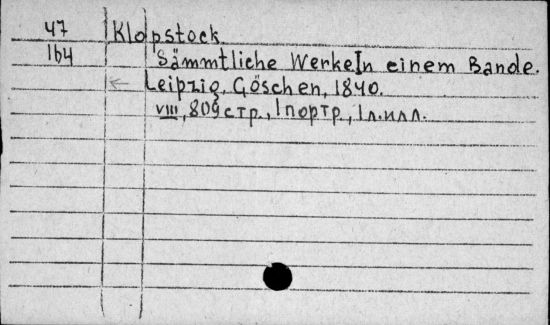 47 Klopstock
164 Sämmtliche Werke In einem Bande.
Leipzig, Göschen, 1840.
VIII, 809 стр., 1 портр., 1 л. илл.